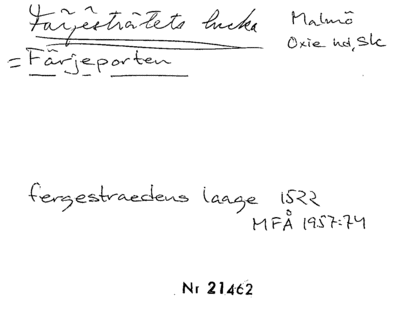 Färjesträtets lucka
Malmö
Oxie hd, Sk
= Färjeporten
fergestraedens laage 1522
MFÅ 1957:74
Nr 21462